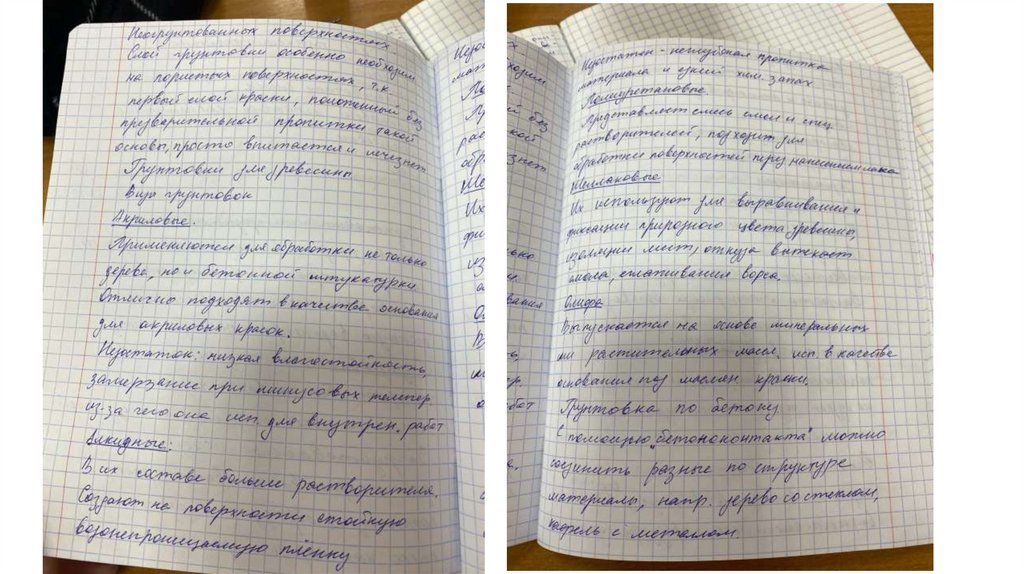 Неогрунтованных поверхностях
Слой грунтовки особенно необходим
на пористых поверхностях, т.к
первый слой краски, положенный без
предварительной пропитки такой
основы, просто впитается и исчезнет
Грунтовки для древесины
Вид грунтовок
Акриловые.
Применяются для обработки не только
дерева, но и бетонной штукатурки
Отлично подходят в качестве основания
для акриловых красок.
Недостаток: низкая влагостойкость,
замерзание при минусовых темпер.
из-за чего она исп. для внутрен. работ
Алкидные:
В их составе больше растворителя.
Создают на поверхности стойкую
водонепроницаемую плёнку
Недостаток - неглубокая пропитка
материала и едкий хим. запах
Полиуретановые
Представляют смесь смол и спец.
растворителей, подходит для
обработки поверхностей перед нанесением лака
Шеллаковые
Их используют для выравнивания и
фиксации природного цвета древесины,
изоляции мест, откуда вытекает
смола, сглаживания ворса.
Олифа
Выпускается на основе минеральных
или растительных масел. исп. в качестве
основания под маслян. краски.
Грунтовка по бетону
С помощью "бетоноконтакта" можно
соединить разные по структуре
материалы, напр. дерево со стеклом,
кафель с металлом.